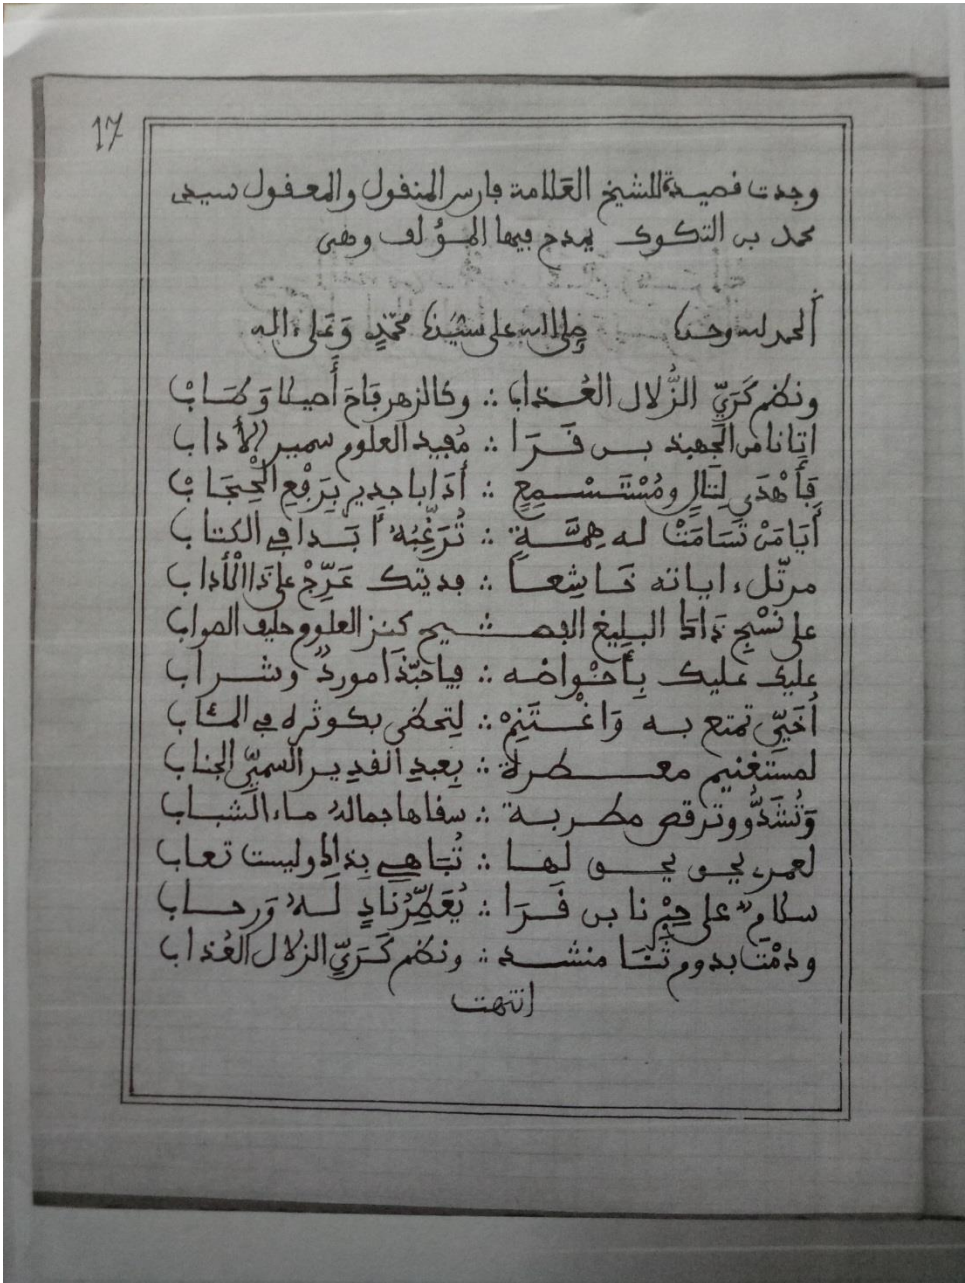 17
وجدت قصيدة للشيخ العلامة فارس المنقول والمعقول سيدي
محمد بن التكوك يمدح فيها المؤلف وهي
ألحمد لله وحده صلى الله على سيدنا محمد وعلى اله
ونظم كَرَيِّ الزُّلال العُذاب ∴ وكالزهر فَاحَ أَصيلا وَطَابْ
اتانا من الجهبذ بن فَرَا ∴ مُفيد العلوم سمير الأداب
فَأَهْدَى لِتَالٍ ومُسْتَسْمِعٍ ∴ أَدَابا جدير بِرَفْعِ الْحِجَابْ
أَيَا مَنْ تَسَامَتْ له هِمَّةٍ ∴ تُرَغِّبُهُ أَبَدا في الكتاب
مرتّل ءاياته خَاشِعا ∴ فديتك عَرِّجْ على ذَا الْأداب
على نَسْجِ ذَاكَ البليغ الفصيح كنز العلوم حليف الصواب
عليك عليك بِأَحْوَاضه ∴ فيا حبّذَا موردٌ وشراب
أُخَيِّى تمتع به وَاغْتَنِمْ ∴ لِتحظى بكوثره في المئاب
لمستغنيم معطرة ∴ بِعبدِ القدِير السميِّ الجناب
وَتُشَدُّو وترقص مطربة ∴ سقاها جمالهُ ماء الشباب
لعمرى يحق يحق لها ∴ تُبَاهي بِذاكَ وليست تعاب
سلامٌ على حِبِّنا بن فَرَا ∴ يُعَطِّرُ نَادٍ لَهُ وَرحاب
ودمْتَ بدوم ثَنَا منشد ∴ ونظم كَرَيِّ الزلال العُذاب
انتهت